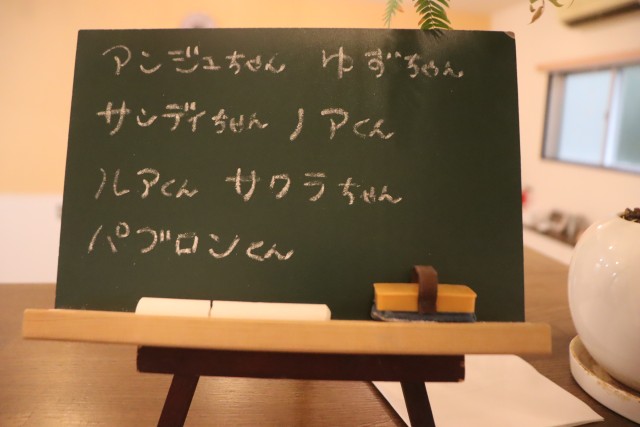 アンジュちゃん ゆずちゃん
サンディちゃん ノアくん
ルアくん サクラちゃん
パブロンくん